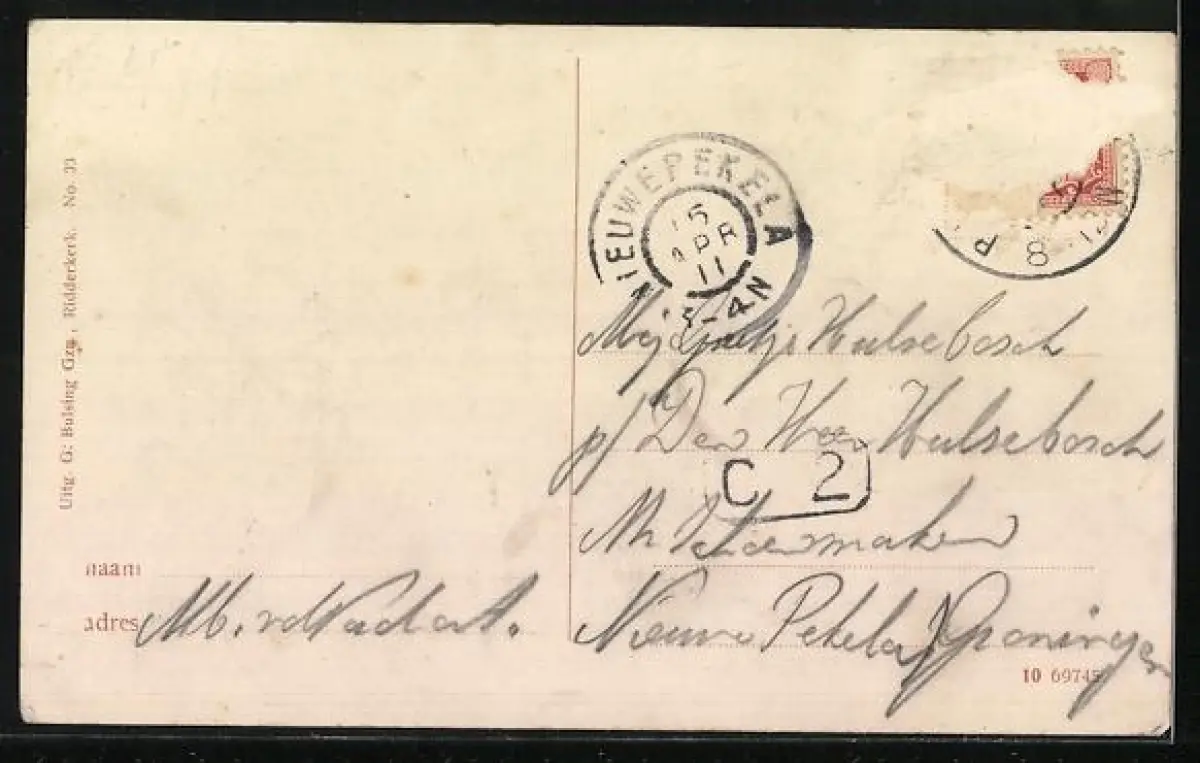 Uitg. G. Bulsing Gzn., Ridderkerk. No. 33
NIEUWE PEKELA
15
APR
11
3-4N
8
Mej Hulsebosch
p/ Den Heer Hulsebosch
C 2
Mr Schoenmaker
Nieuwe Pekela Groningen
naam
adres
10 69745